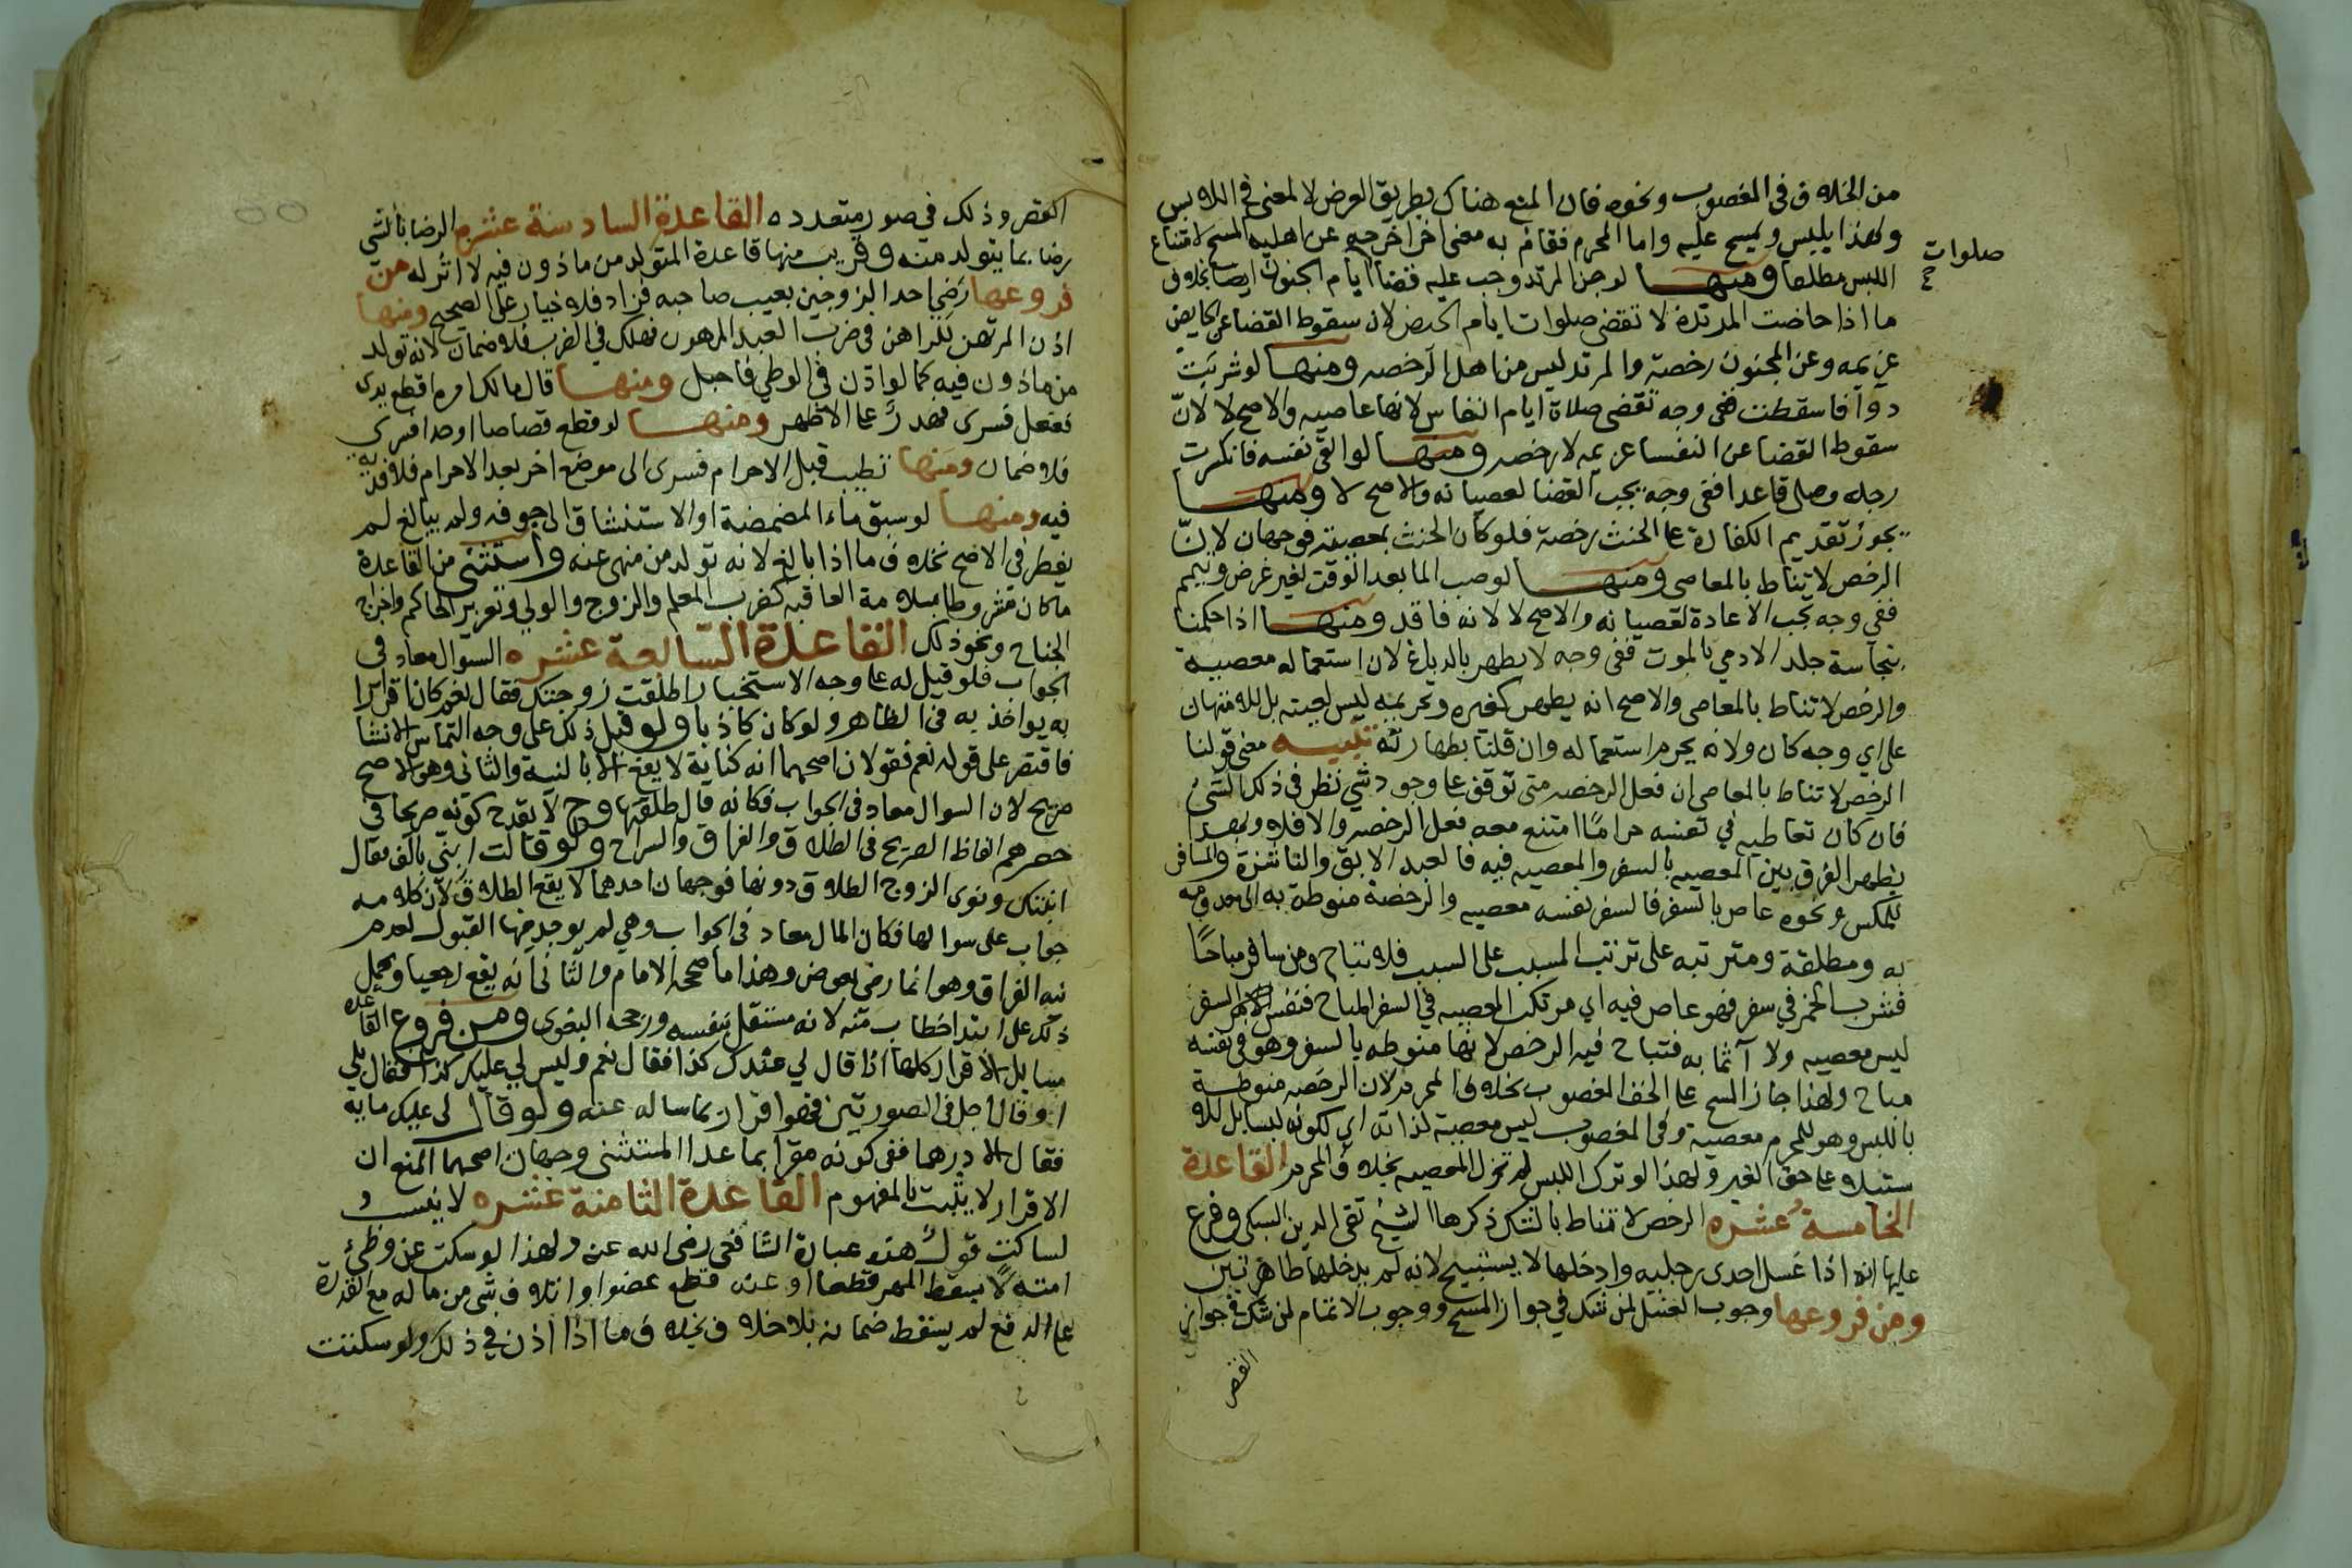 من الخلاف في المغصوب ونحوه فان المنع هناك بطريق العرض لا لمعنى في اللابس
ولهذا يلبس ويمسح عليه واما المحرم فقام به معنى اخر اخرجه عن اهليه المسح لامتناع
صلوات
اللبس مطلقا ومنها لو جن المرتد وجب عليه قضا ايام الجنون ايضا بخلاف
ما اذا حاضت المرتدة لا تقضى صلوات ايام الحيض لان سقوط القضا عن الحايض
عزيمه وعن المجنون رخصة والمرتد ليس من اهل الرخصه ومنها لو شربت
دوآ فاسقطت ففى وجه تقضى صلاة ايام النفاس لانها عاصيه والاصح لا لانّ
سقوط القضا عن النفسا عزيمه لا رخصه ومنها لو القى نفسه فانكسرت
رجله وصلى قاعدا ففى وجه يجب القضا لعصيانه والاصح لا ومنها
يجوز تقديم الكفارة على الحنث رخصة فلو كان الحنث بمعصية فوجهان لانّ
الرخص لا تناط بالمعاصى ومنها لو صب الما بعد الوقت لغير غرض وتيمم
ففى وجه تجب الاعادة لعصيانه والاصح لا لانه فاقد ومنها اذا حكمنا
بنجاسة جلد الادمي بالموت ففى وجه لا يطهر بالدباغ لان استعماله معصية
والرخص لا تناط بالمعاصى والاصح انه يطهر كغيره وتحريمه ليس لعينه بل للامتهان
على اي وجه كان ولانه يحرم استعماله وان قلنا بطهارته تنبيه معنى قولنا
الرخص لا تناط بالمعاصى ان فعل الرخصه متى توقف على وجود شي نظر في ذلك الشئ
فان كان تعاطيه في نفسه حراما امتنع معه فعل الرخصه والا فلا وبهذا
يظهر الفرق بين المعصيه بالسفر والمعصيه فيه فالعبد الابق والناشزة والمسافر
للمكس ونحوه عاص بالسفر فالسفر نفسه معصيه والرخصة منوطة به
به ومطلقة ومترتبه على ترتب المسبب على السبب فلا تباح ومن سافر مباحًا
فشرب الخمر في سفر فهو عاص فيه اي مرتكب المعصيه في السفر المباح فنفس السفر
ليس معصيه ولا آثما به فتباح فيه الرخص لانها منوطه بالسفر وهو في نفسه
مباح ولهذا جاز المسح على الخف المغصوب بخلاف المحرم لان الرخصه منوطة
باللبس وهو للمحرم معصية وفى المغصوب ليس معصية لذاته اي لكونه لبسا بل للا
ستيلا على حق الغير ولهذا لو ترك اللبس لم تزل المعصيه بخلاف المحرم القاعدة
الخامسة عشره الرخص لا تناط بالشك ذكرها الشيخ تقى الدين السبكى وفرع
عليها انه اذا غسل احدى رجليه وادخلها لا يستبيح لانه لم يدخلهما طاهرتين
ومن فروعها وجوب الغسل لمن شك في جواز المسح ووجوب الاتمام لمن شك في جواز
القصر
القصر وذلك في صور متعدده القاعدة السادسة عشره الرضا بالشي
رضا بما يتولد منه وقريب منها قاعدة المتولد من ماذون فيه لا اثر له من
فروعها رضي احد الزوجين بعيب صاحبه فزاد فلا خيار على الصحيح ومنها
اذن المرتهن للراهن في ضرب العبد المرهون فهلك في الضرب فلا ضمان لانه تولد
من ماذون فيه كما لو اذن في الوطي فاحبل ومنها قال مالك امره اقطع يدى
ففعل فسرى فهدر على الاظهر ومنها لو قطع قصاصا او حدا فسرى
فلا ضمان ومنها تطيب قبل الاحرام فسرى الى موضع اخر بعد الاحرام فلا فدية
فيه ومنها لو سبق ماء المضمضة او الاستنشاق الى جوفه ولم يبالغ لم
يفطر في الاصح بخلاف ما اذا بالغ لانه تولد من منهى عنه واستثنى من القاعدة
ما كان مشروطا بسلامة العاقبه كضرب المعلم والزوج والولي وتعزير الحاكم واخراج
الجناح ونحو ذلك القاعدة السابعة عشره السوال معاد فى
الجواب فلو قيل له على وجه الاستخبار اطلقت زوجتك فقال نعم كان اقرارا
به يواخذ به في الظاهر ولو كان كاذبا ولو قيل ذلك على وجه التماس الانشا
فاقتصر على قوله نعم فقولان اصحهما انه كناية لا يقع الا بالنية والثاني وهو الاصح
صريح لان السوال معاد في الجواب فكانه قال طلقتها وح لا يقدح كونه صريحا في
حصرهم الفاظ الصريح في الطلاق والفراق والسراح ولو قالت ابنّي بالف فقال
ابنتك ونوى الزوج الطلاق دونها فوجهان احدهما لا يقع الطلاق لان كلامه
جواب على سوالها فكان المال معاد في الجواب وهي لم يوجد منها القبول لعدم
نية الفراق وهو انما رضى بعوض وهذا ما صححه الامام والثاني انه يقع رجعيا ويحمل
ذلك على ابتدا خطاب منه لانه مستقل بنفسه ورجحه البغوى ومن فروع القاعده
مسايل الاقرار كلها اذا قال لي عندك كذا فقال نعم وليس لي عليك كذا فقال بلى
او قال اجل في الصورتين فهو اقرار بما ساله عنه ولو قال لى عليك مايه
فقال الا درهما ففى كونه مقرا بما عدا المستثنى وجهان اصحهما المنع ان
الاقرار لا يثبت بالمفهوم القاعدة الثامنة عشره لا ينسب
لساكت قول هذه عبارة الشافعى رضى الله عنه ولهذا لو سكت عن وطئ
امته لا يسقط المهر قطعا او عن قطع عضو او اتلاف شى من ماله مع القدرة
على الدفع لم يسقط ضمانه بلا خلاف بخلاف ما اذا اذن في ذلك ولو سكتت